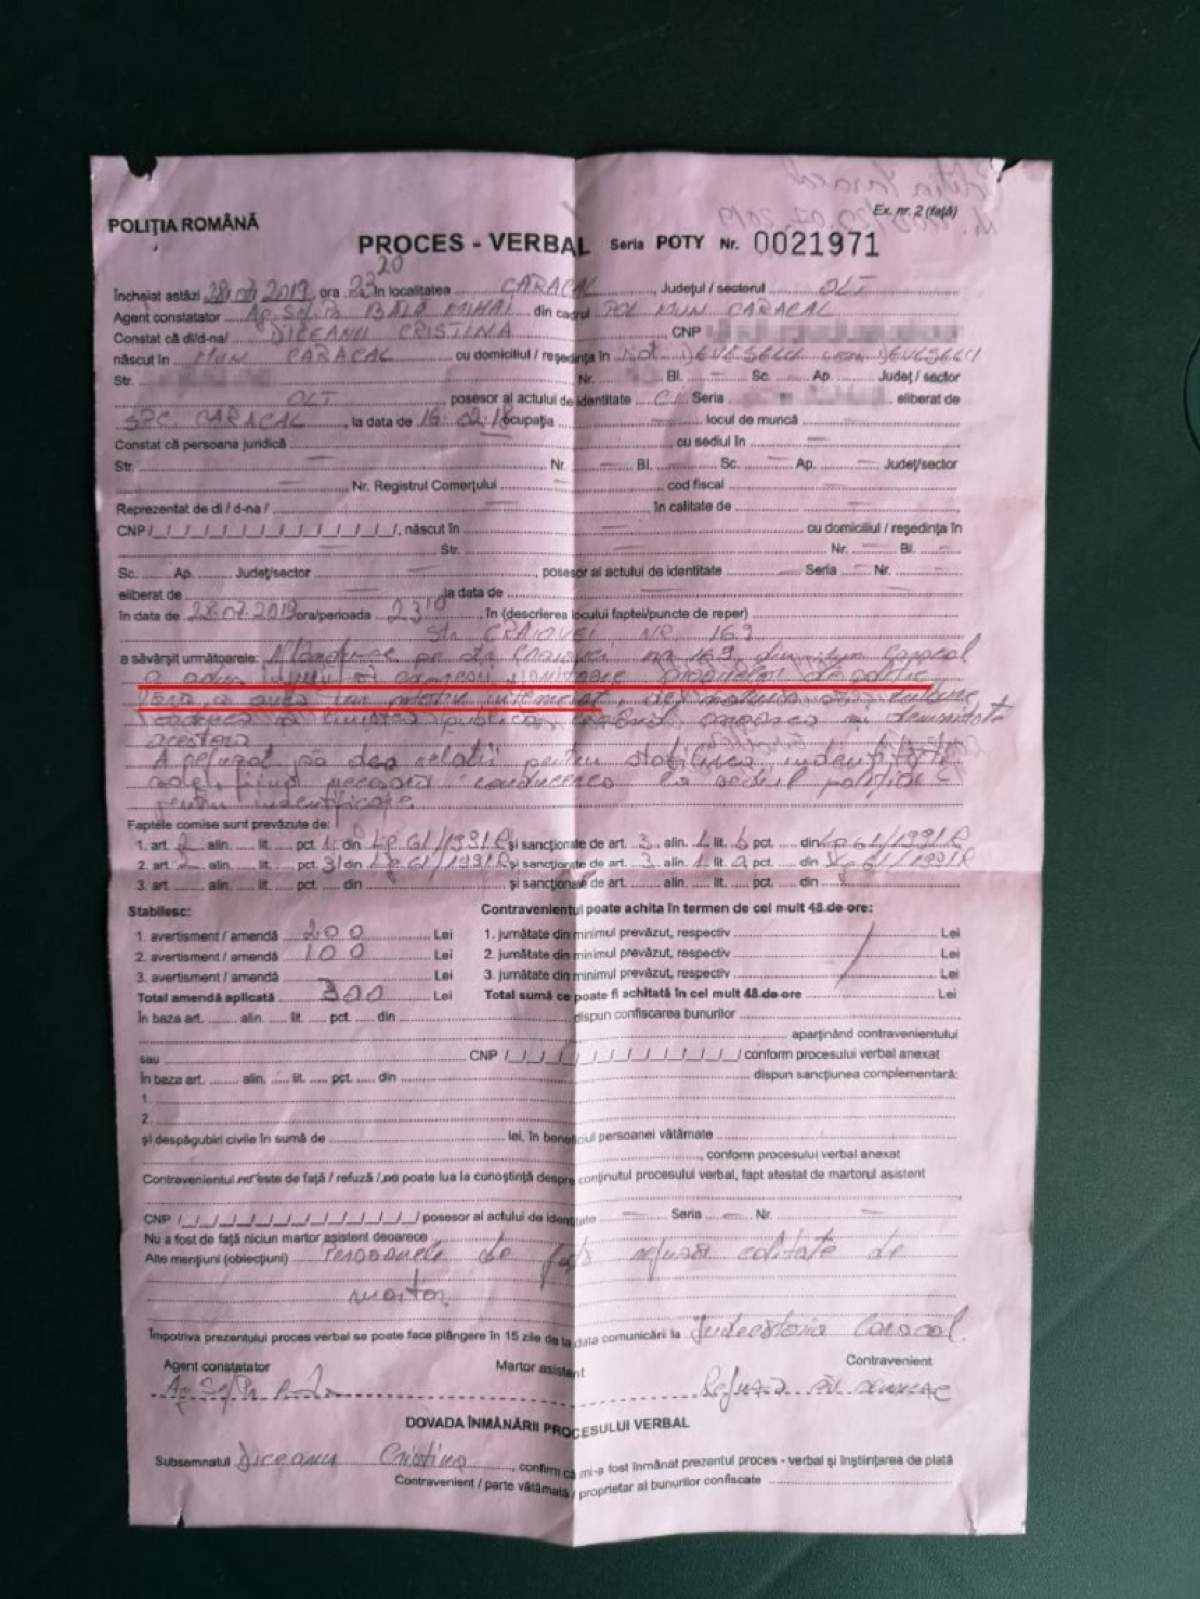 Ex. nr. 2 (față)
POLIȚIA ROMÂNĂ
PROCES - VERBAL Seria POTY Nr. 0021971
Încheiat astăzi 28.07 2019, ora 23 20 în localitatea CARACAL, Județul / sectorul OLT
Agent constatator Ag. Șef. P. MIHAI din cadrul POL MUN CARACAL
Constat că dl/d-na/ DICEANU CRISTINA CNP
născut în MUN CARACAL cu domiciliul / reședința în DEVESELU com. DEVESELU
Str. Nr. Bl. Sc. Ap. Județ / sector
OLT posesor al actului de identitate C.I. Seria eliberat de
SPC. CARACAL, la data de 16.02.18 ocupația locul de muncă
Constat că persoana juridică cu sediul în
Str. Nr. Bl. Sc. Ap. Județ/sector
Nr. Registrul Comerțului cod fiscal
Reprezentat de dl / d-na / în calitate de
CNP /_/_/_/_/_/_/_/_/_/_/_/_/_/, născut în cu domiciliul / reședința în
Str. Nr. Bl.
Sc. Ap. Județ/sector, posesor al actului de identitate Seria Nr.
eliberat de la data de
în data de 28.07.2019 ora/perioada 23 10, în (descrierea locului faptei/puncte de reper)
Str. CRAIOVEI, NR. 169
a săvârșit următoarele: pe str. Craiovei nr. 169 Caracal
a adus organelor de poliție
fără a avea un motiv întemeiat, de natură să tulbure
ordinea și liniștea publică, onoarea și demnitatea
acestora
A refuzat să dea relații pentru stabilirea identității
sale, fiind necesară conducerea la sediul poliției
pentru indentificare.
Faptele comise sunt prevăzute de:
1. art. 2 alin. lit. pct. 1 din Lg 61/1991R și sancționate de art. 3 alin. 1 lit. b pct. din Lg 61/1991 R
2. art. 2 alin. lit. pct. 31 din Lg 61/1991R și sancționate de art. 3 alin. 1 lit. a pct. din Lg 61/1991R
3. art. alin. lit. pct. din și sancționate de art. alin. lit. pct. din
Stabilesc: Contravenientul poate achita în termen de cel mult 48 de ore:
1. avertisment / amendă 200 Lei 1. jumătate din minimul prevăzut, respectiv Lei
2. avertisment / amendă 100 Lei 2. jumătate din minimul prevăzut, respectiv Lei
3. avertisment / amendă Lei 3. jumătate din minimul prevăzut, respectiv Lei
Total amendă aplicată 300 Lei Total sumă ce poate fi achitată în cel mult 48 de ore Lei
În baza art. alin. lit. pct. din dispun confiscarea bunurilor
aparținând contravenientului
sau CNP /_/_/_/_/_/_/_/_/_/_/_/_/_/ conform procesului verbal anexat
În baza art. alin. lit. pct. din dispun sancțiunea complementară:
1.
2.
și despăgubiri civile în sumă de lei, în beneficiul persoanei vătămate
, conform procesului verbal anexat
Contravenientul nu este de față / refuză / nu poate lua la cunoștință despre conținutul procesului verbal, fapt atestat de martorul asistent
CNP /_/_/_/_/_/_/_/_/_/_/_/_/_/ posesor al actului de identitate Seria Nr.
Nu a fost de față niciun martor asistent deoarece
Alte mențiuni (obiecțiuni) Persoanele de față refuză calitate de
martor.
Împotriva prezentului proces verbal se poate face plângere în 15 zile de la data comunicării la Judecătoria Caracal.
Agent constatator Martor asistent Contravenient
Ag. Șef P. Refuză să semneze
DOVADA ÎNMÂNĂRII PROCESULUI VERBAL
Subsemnatul Diceanu Cristina, confirm că mi-a fost înmânat prezentul proces - verbal și înștiințarea de plată
Contravenient / parte vătămată / proprietar al bunurilor confiscate